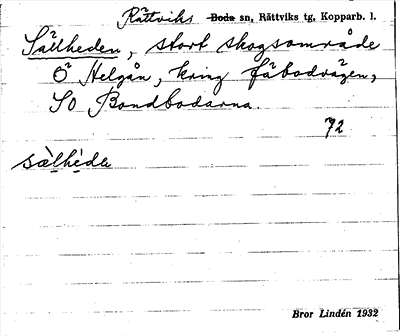 Rättviks Boda sn, Rättviks tg, Kopparb. l.
Sällheden, stort skogsområde
Ö Helgån, kring fäbodvägen,
SO Bondbodarna.
72
sàlhèda
Bror Lindén 1932